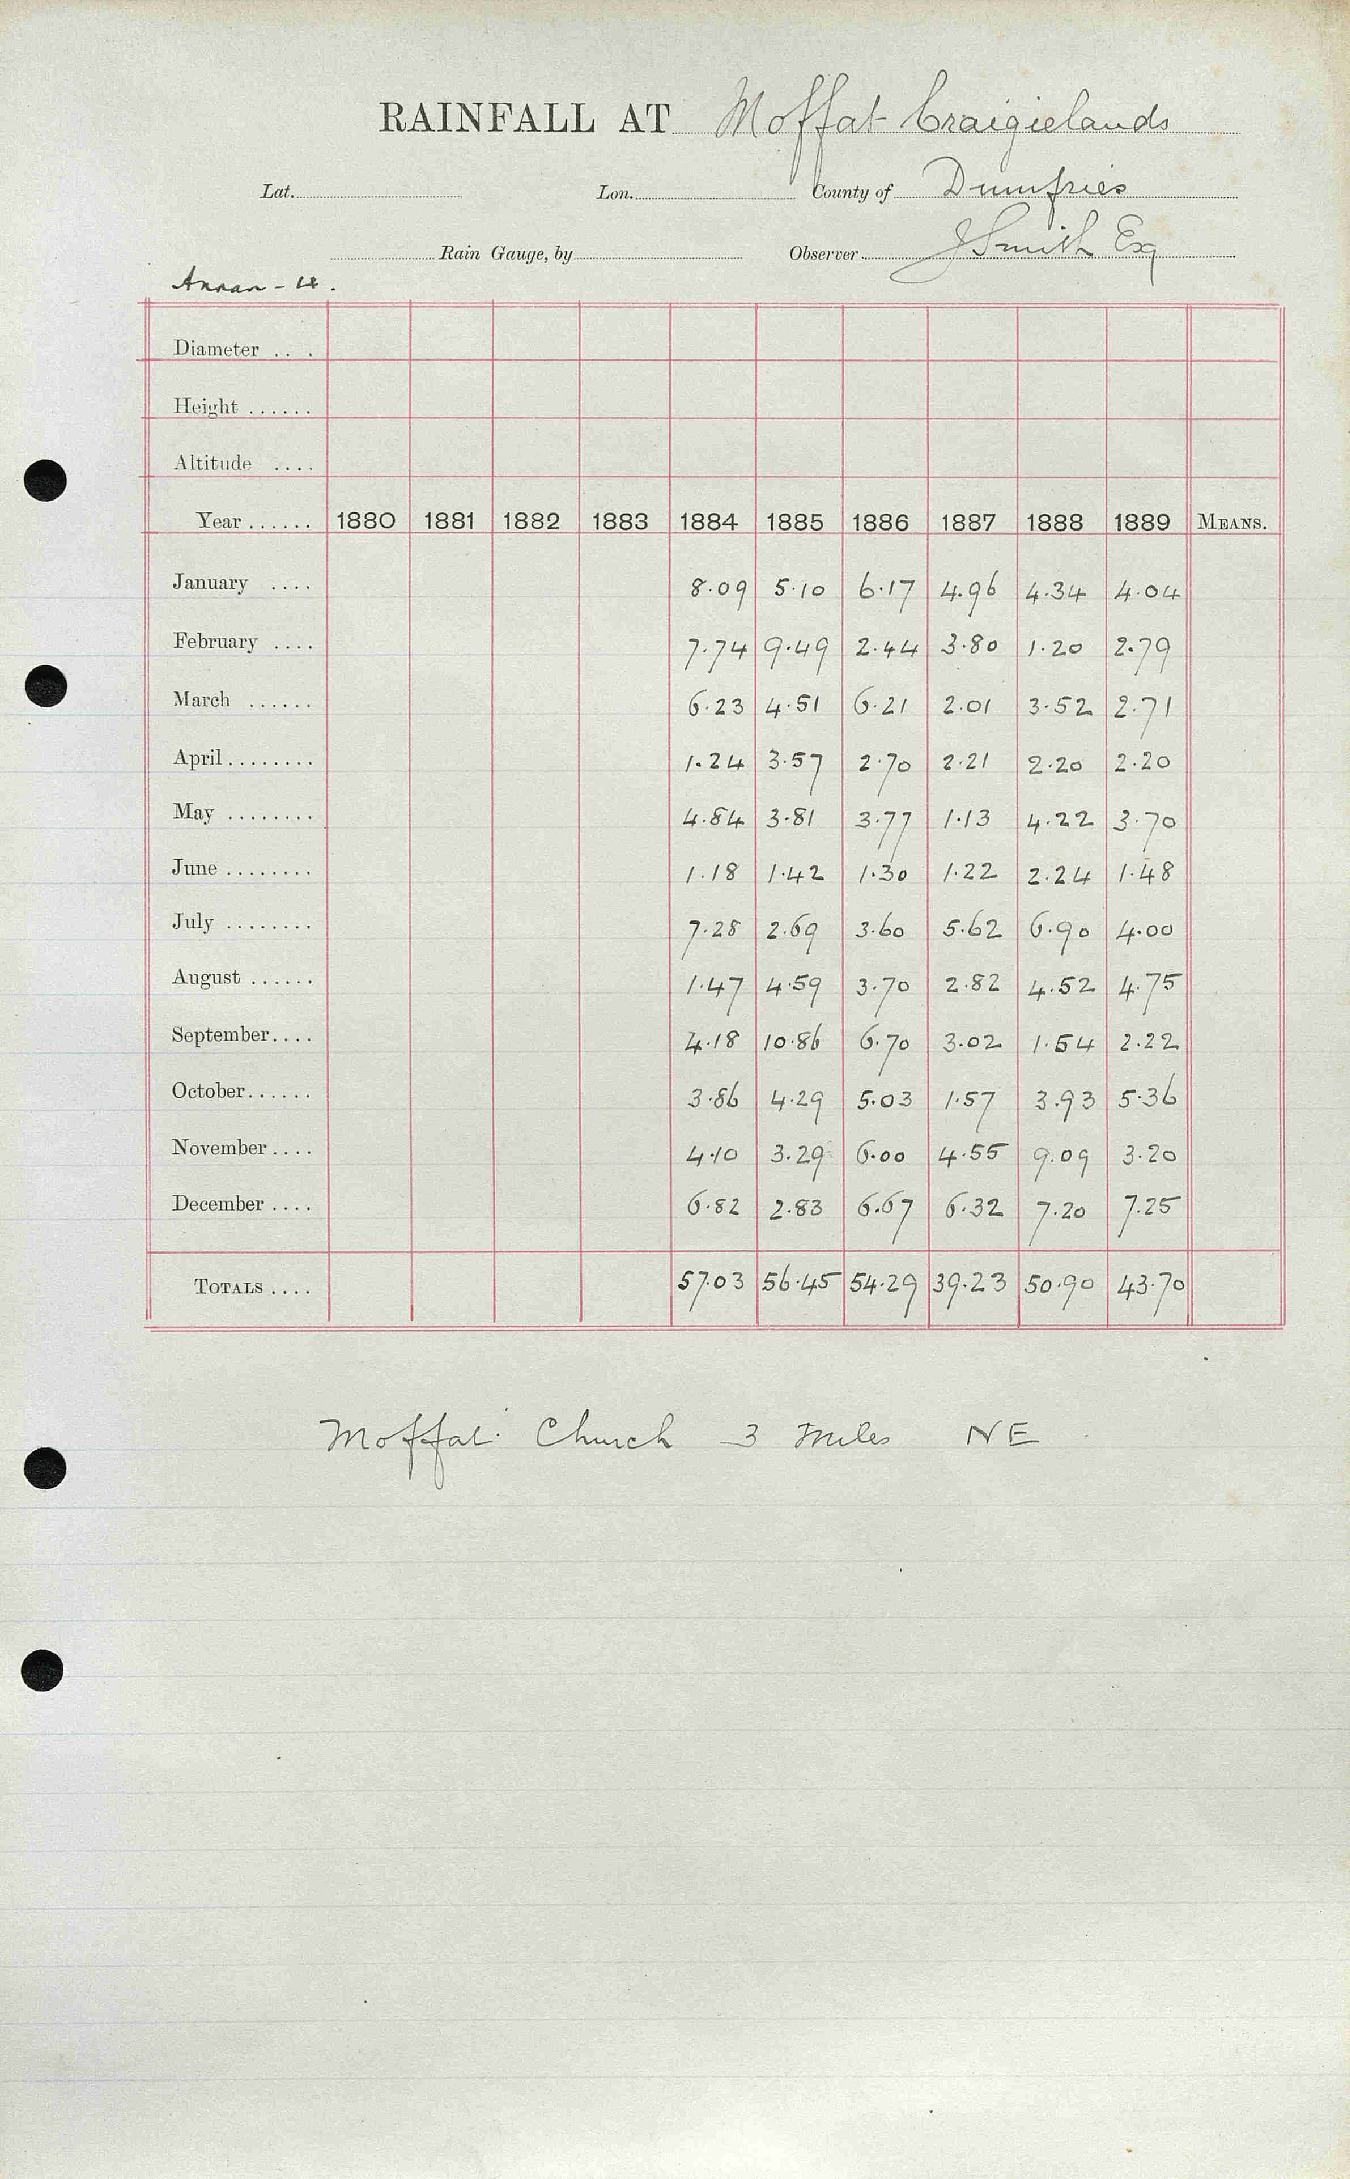 RAINFALL AT Moffat Craigielands
Lat. Lon. County of Dumfries
Rain Gauge, by Observer J Smith Esq
Annan - 4.
Diameter ...
Height ......
Altitude ....
Year ...... 1880 1881 1882 1883 1884 1885 1886 1887 1888 1889 MEANS.
January .... 8.09 5.10 6.17 4.96 4.34 4.04
February .... 7.74 9.49 2.44 3.80 1.20 2.79
March ...... 6.23 4.51 6.21 2.01 3.52 2.71
April ........ 1.24 3.57 2.70 2.21 2.20 2.20
May ........ 4.84 3.81 3.77 1.13 4.22 3.70
June ........ 1.18 1.42 1.30 1.22 2.24 1.48
July ........ 7.28 2.69 3.60 5.62 6.90 4.00
August ...... 1.47 4.59 3.70 2.82 4.52 4.75
September.... 4.18 10.86 6.70 3.02 1.54 2.22
October...... 3.86 4.29 5.03 1.57 3.93 5.36
November .... 4.10 3.29 6.00 4.55 9.09 3.20
December .... 6.82 2.83 6.67 6.32 7.20 7.25
TOTALS .... 57.03 56.45 54.29 39.23 50.90 43.70
Moffat Church 3 miles NE